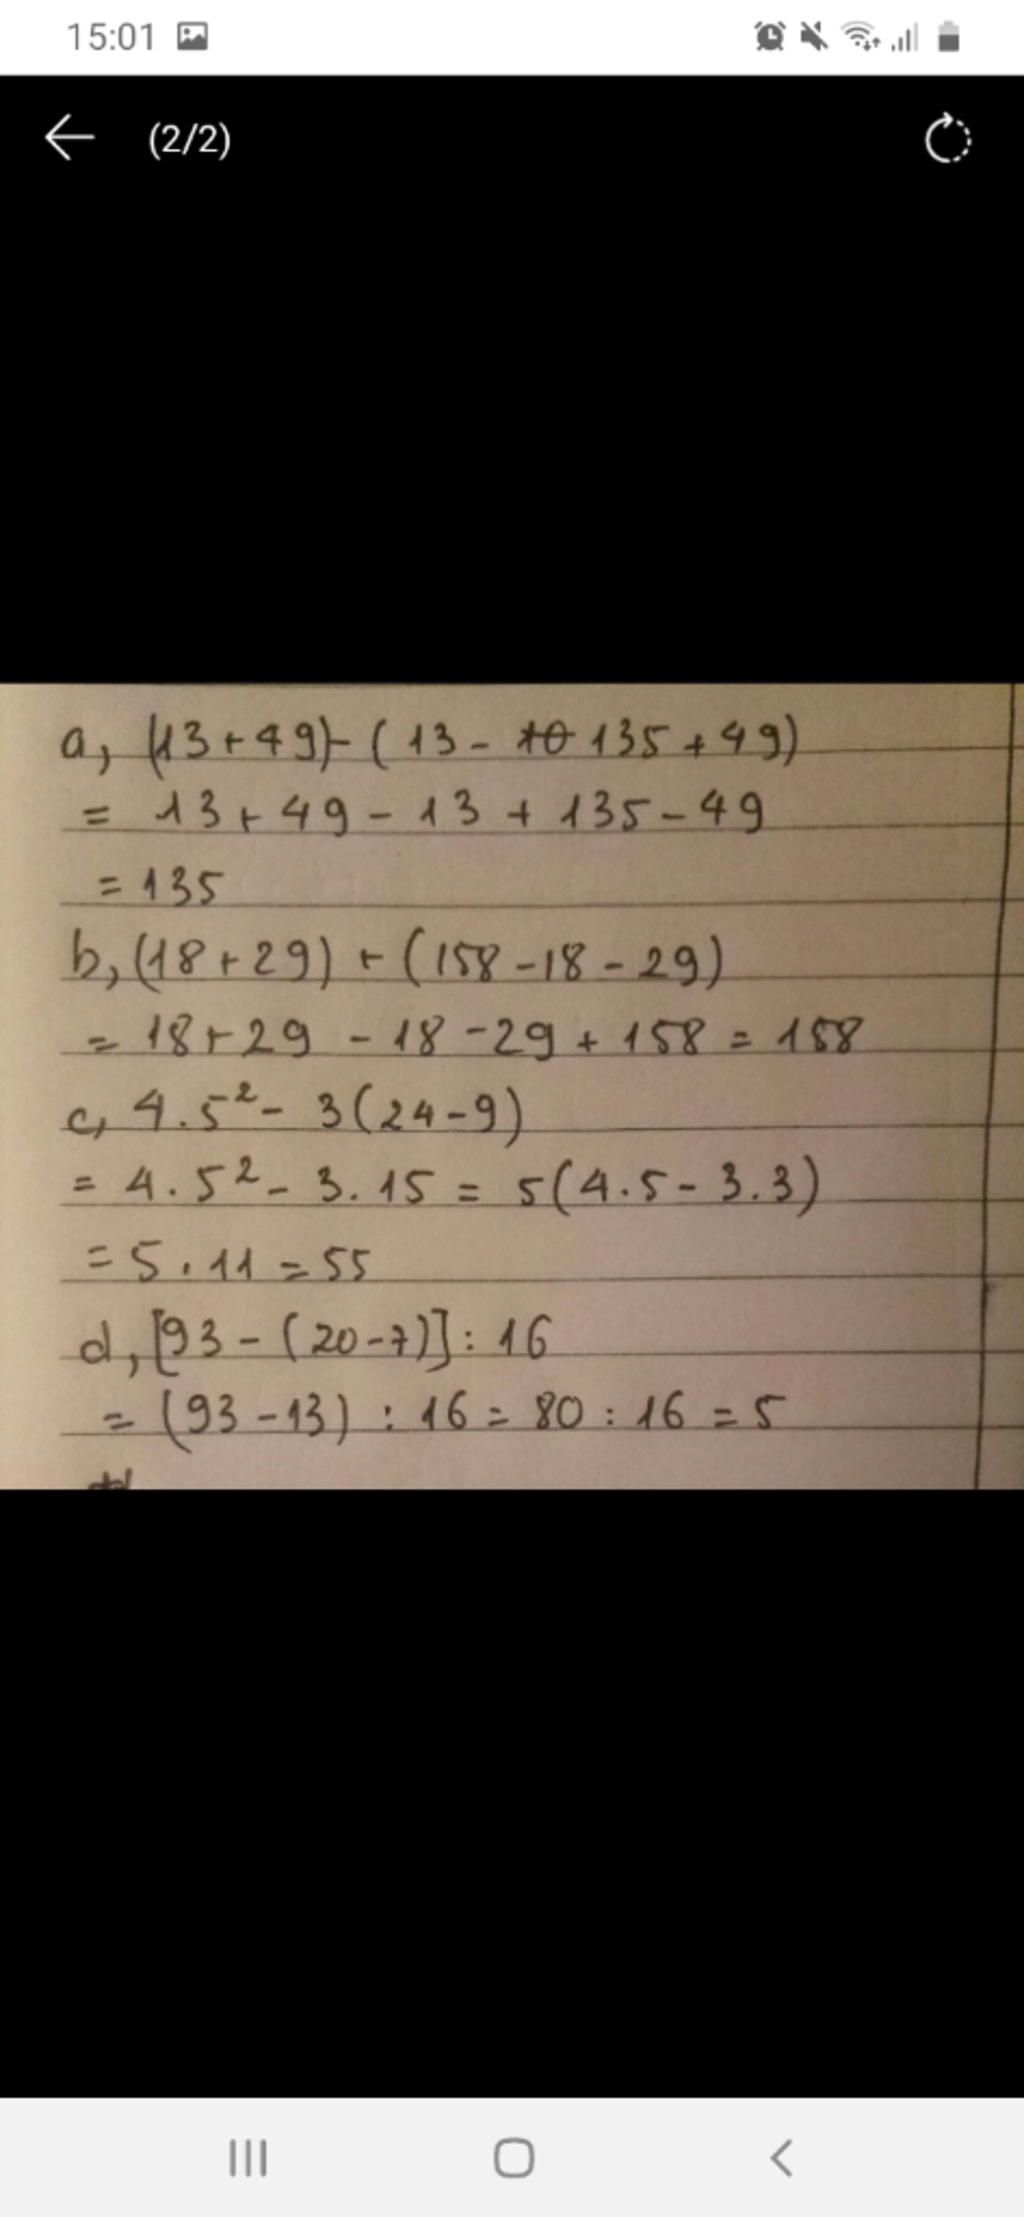 15:01
(2/2)
a, (13+49)-(13- 10 135+49)
= 13+49-13+135-49
=135
b, (18+29)+(158-18-29)
= 18+29 -18-29+158=158
c, 4.5²- 3(24-9)
= 4.5²-3.15= 5(4.5-3.3)
=5.11=55
d, [93-(20-7)]:16
= (93-13):16=80:16=5